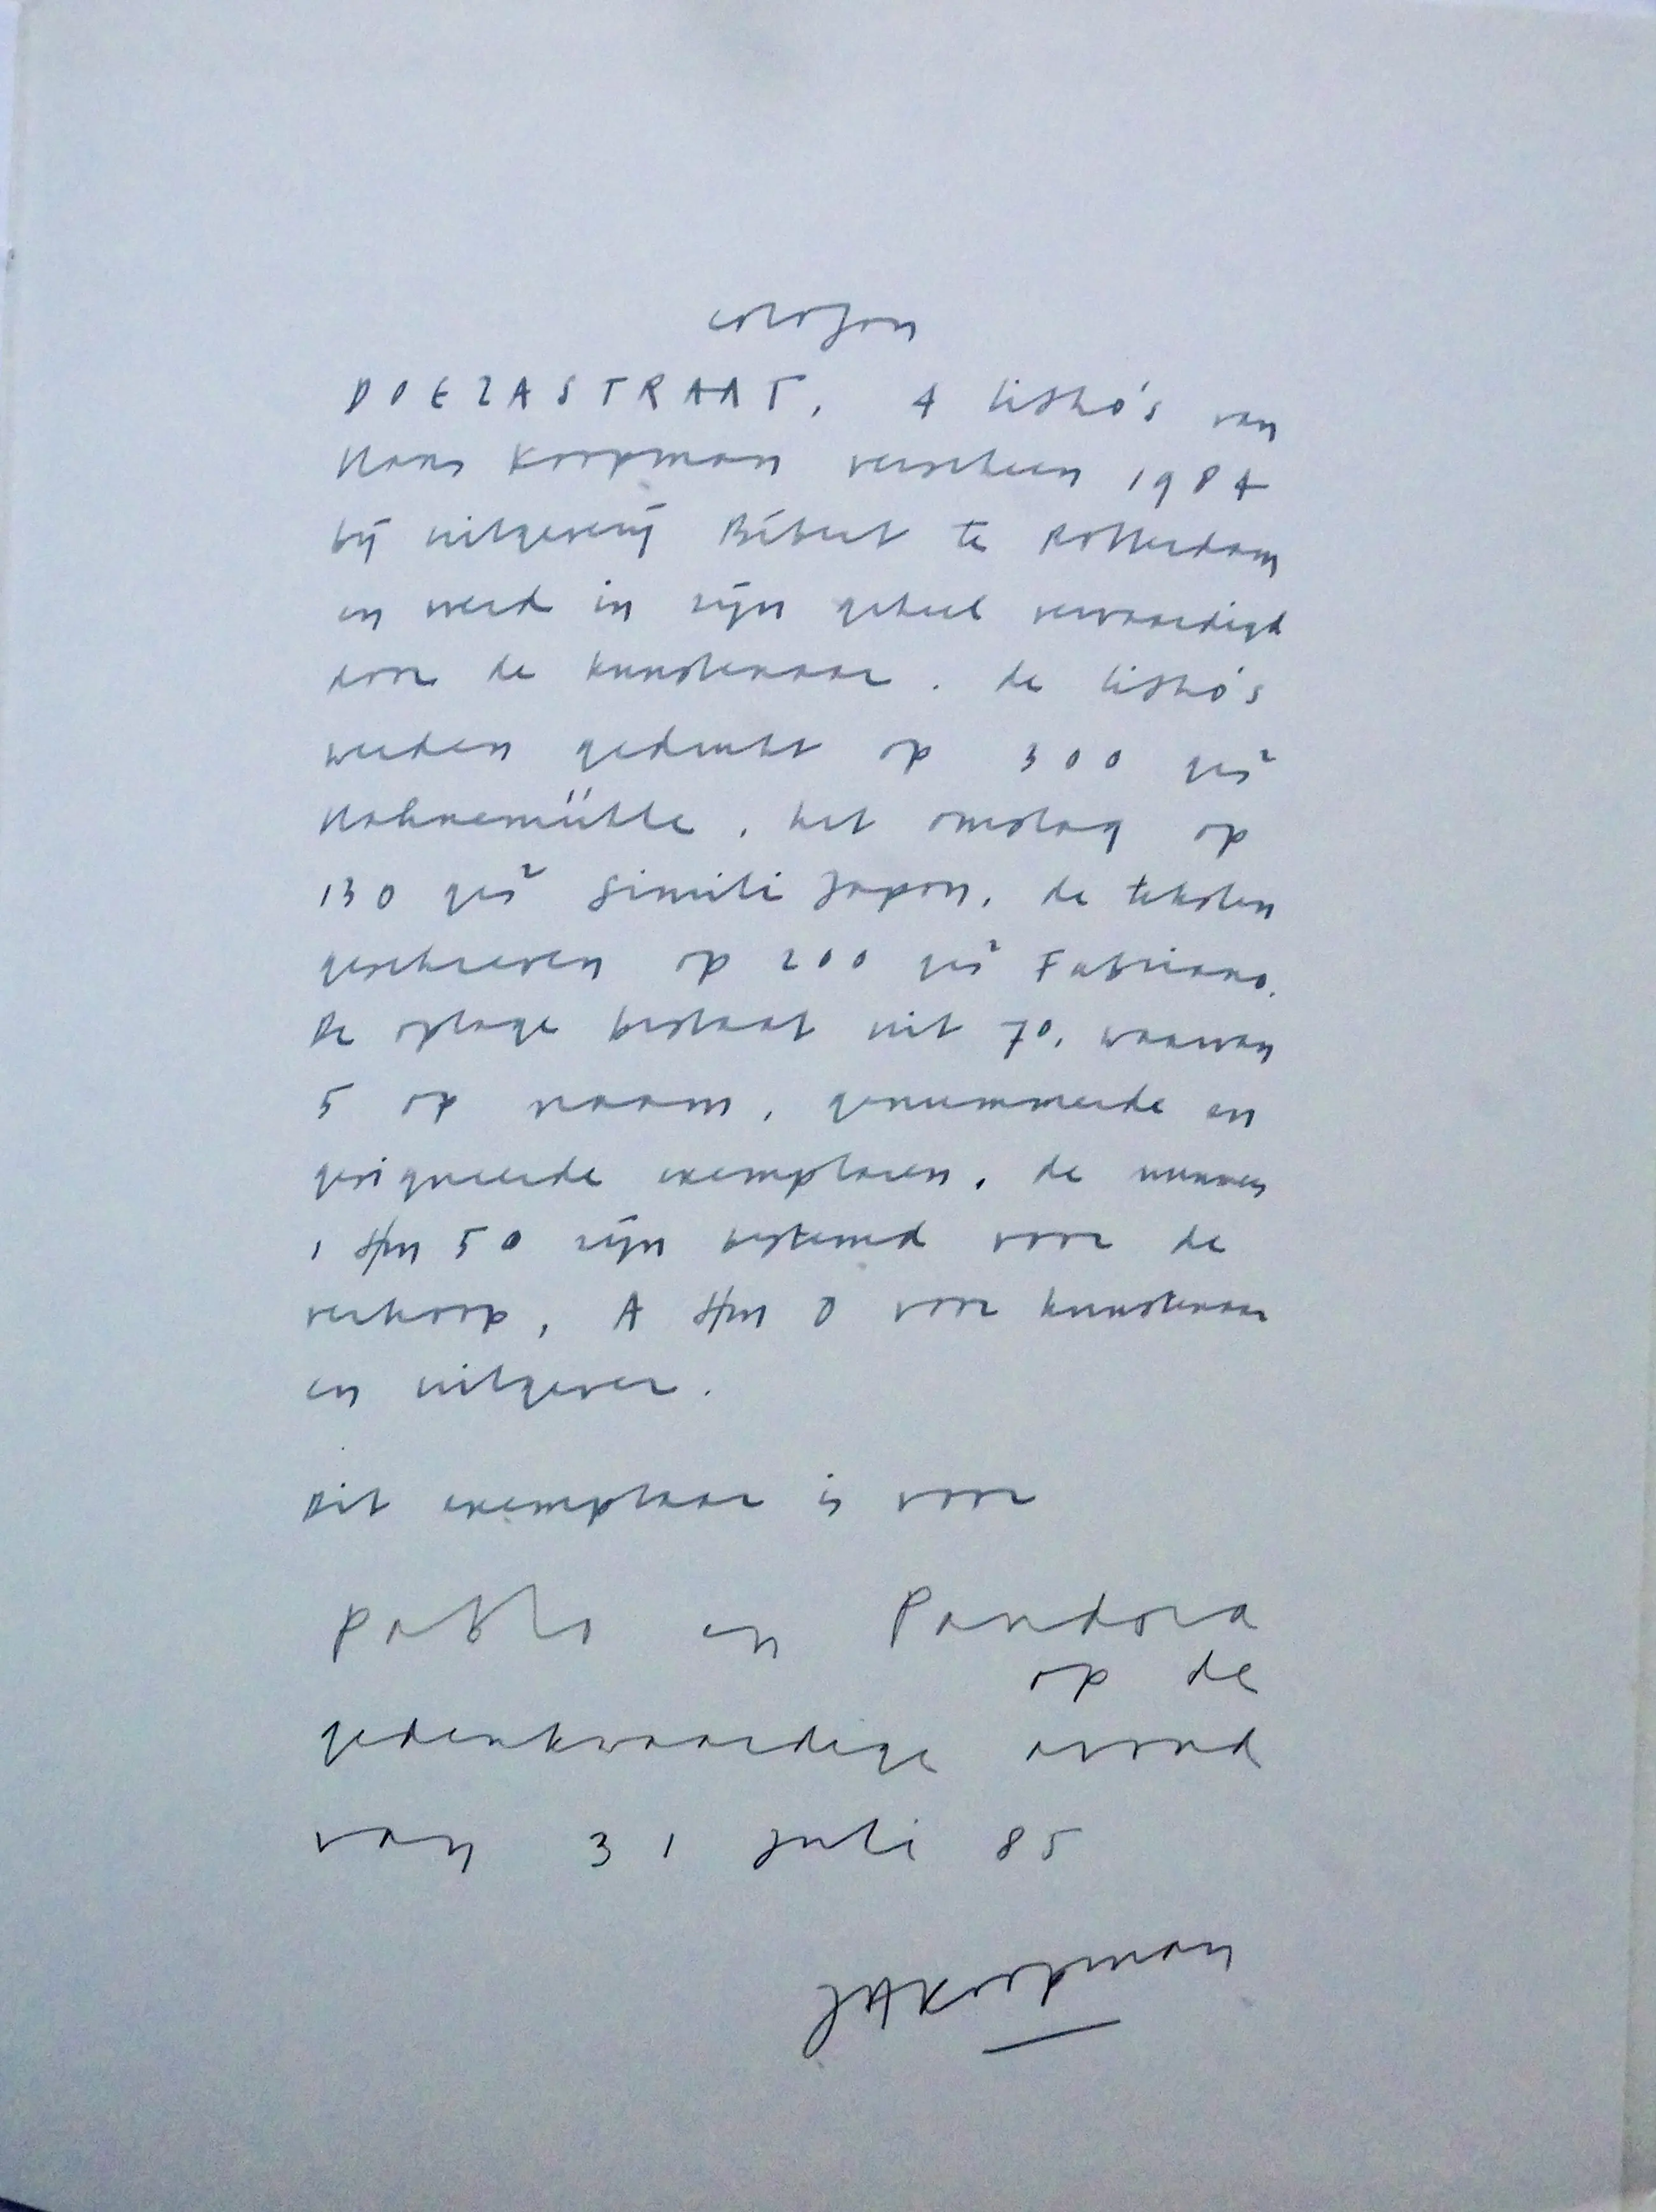 colofon
DOEZASTRAAT, 4 litho's van
Hans Koopman verscheen 1984
bij uitgeverij Bébert te Rotterdam
en werd in zijn geheel vervaardigd
door de kunstenaar. de litho's
werden gedrukt op 300 grs²
Hahnemühle, het omslag op
130 grs² Simili Japon, de teksten
geschreven op 200 grs² Fabriano.
De oplage bestaat uit 70, waarvan
5 op naam, genummerde en
gesigneerde exemplaren, de nummers
1 t/m 50 zijn bestemd voor de
verkoop, A t/m O voor kunstenaar
en uitgever.
Dit exemplaar is voor
Pablo en Pandora
op de
gedenkwaardige avond
van 31 juli 85
JAKoopman